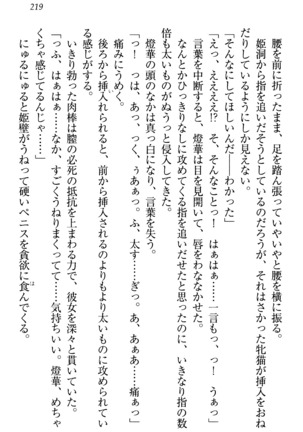 219
腰を前に折ったまま、足を踏ん張っていやいやと腰を横に振る。
姫洞から指を追いだそうとしているのだろうが、それはさかった牝猫が挿入をおね
だりしているようにしか見えない。
「そんなにしてほしいんだ――わかった」
「えっ、ええええ!? そ、そんなこと! はぁはぁ……一言もっ、っ! うぁっ」
言葉を中断すると、燈華は目を見開いて、唇をわななかせた。
なんとかひっきりなしに攻めてくる指を追いだせたと思ったのに、いきなり指の数
倍も太いものがぬうっと侵入してきた。
燈華の頭のなかは真っ白になり、言葉を失う。
「っ! っは、あっ、っく、ぅあぁっ。ふ、太す……ぎっ。あ、あぁあ……痛ぁっ」
痛みにうめく。
後ろから挿入されると、前から挿入されるのよりもより太いものに攻められてい
る感じがする。
いきり勃った肉棒は膣の必死の抵抗を上まわる力で、彼女を深々と貫いていた。
「っふ、はぁはぁ……なか、すごくうねりまくってて……気持ちいい。燈華、めちゃ
くちゃ感じてるんじゃ……」
にゅるにゅると姫壁がうねって硬いペニスを貪欲に食んでくる。